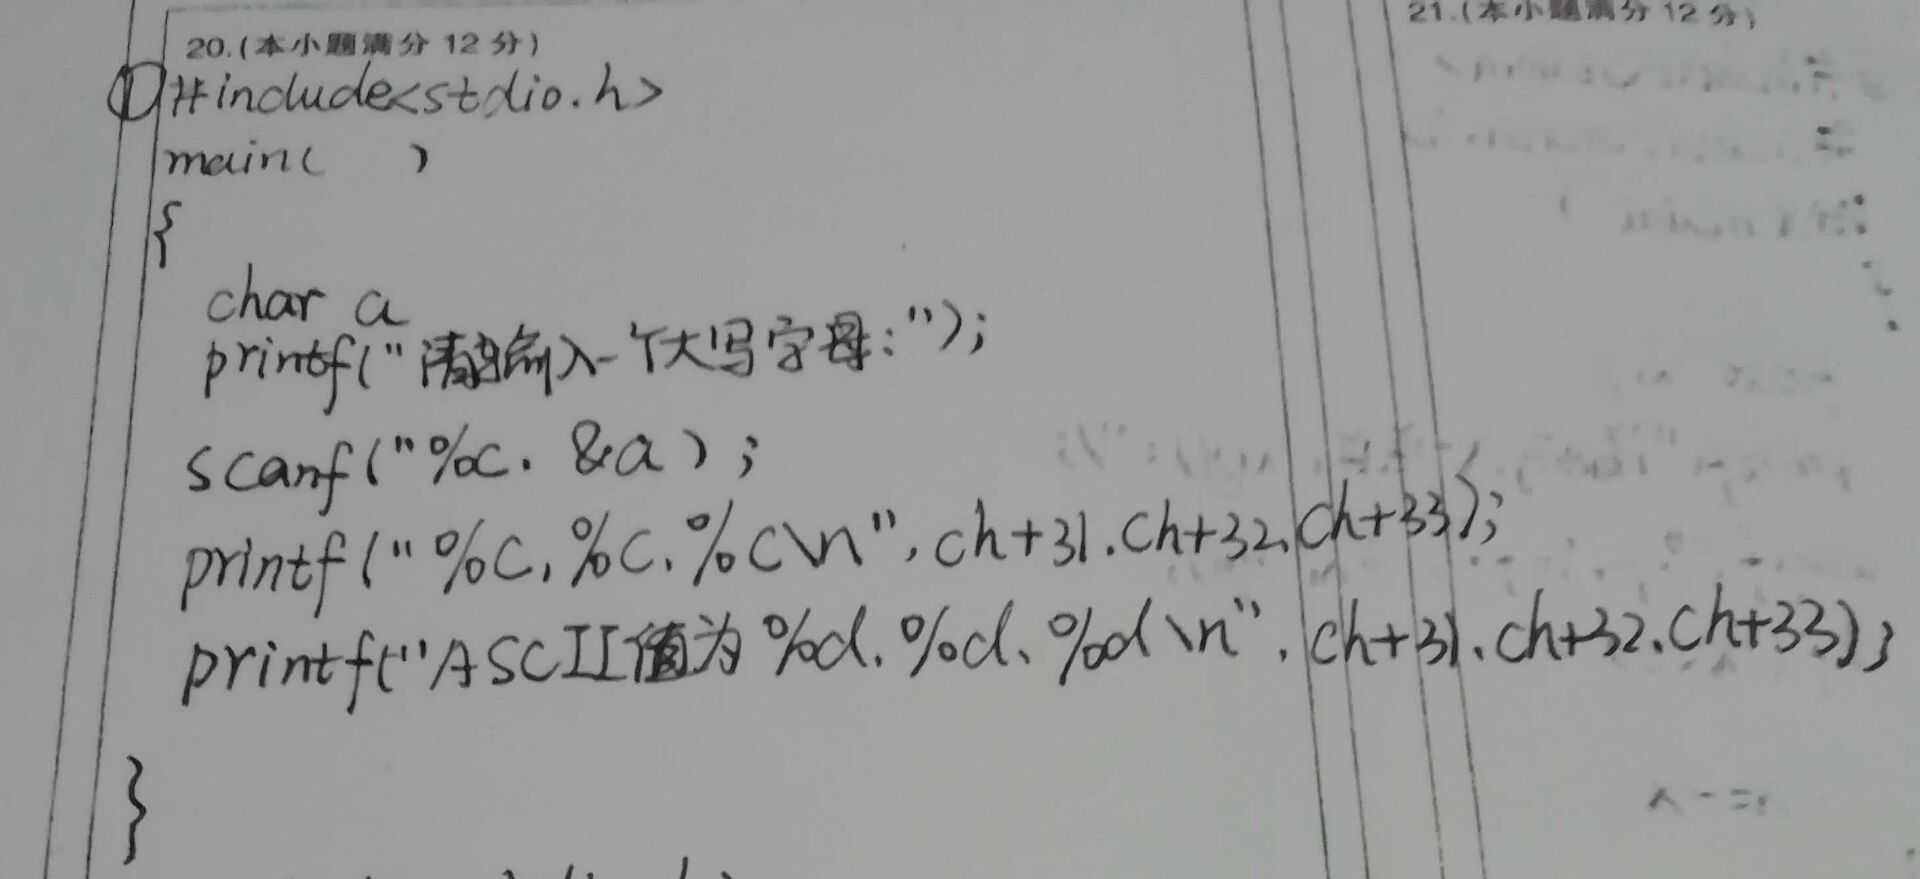 20.(本小题满分 12 分)
21.(本小题满分 12 分)
①#include<stdio.h>
main( )
{
char a
printf("请输入一个大写字母:");
scanf("%c. &a);
printf("%c,%c.%c\n",ch+31.ch+32,ch+33);
printf("ASCII值为%d.%d、%d\n".ch+31、ch+32.ch+33);
}